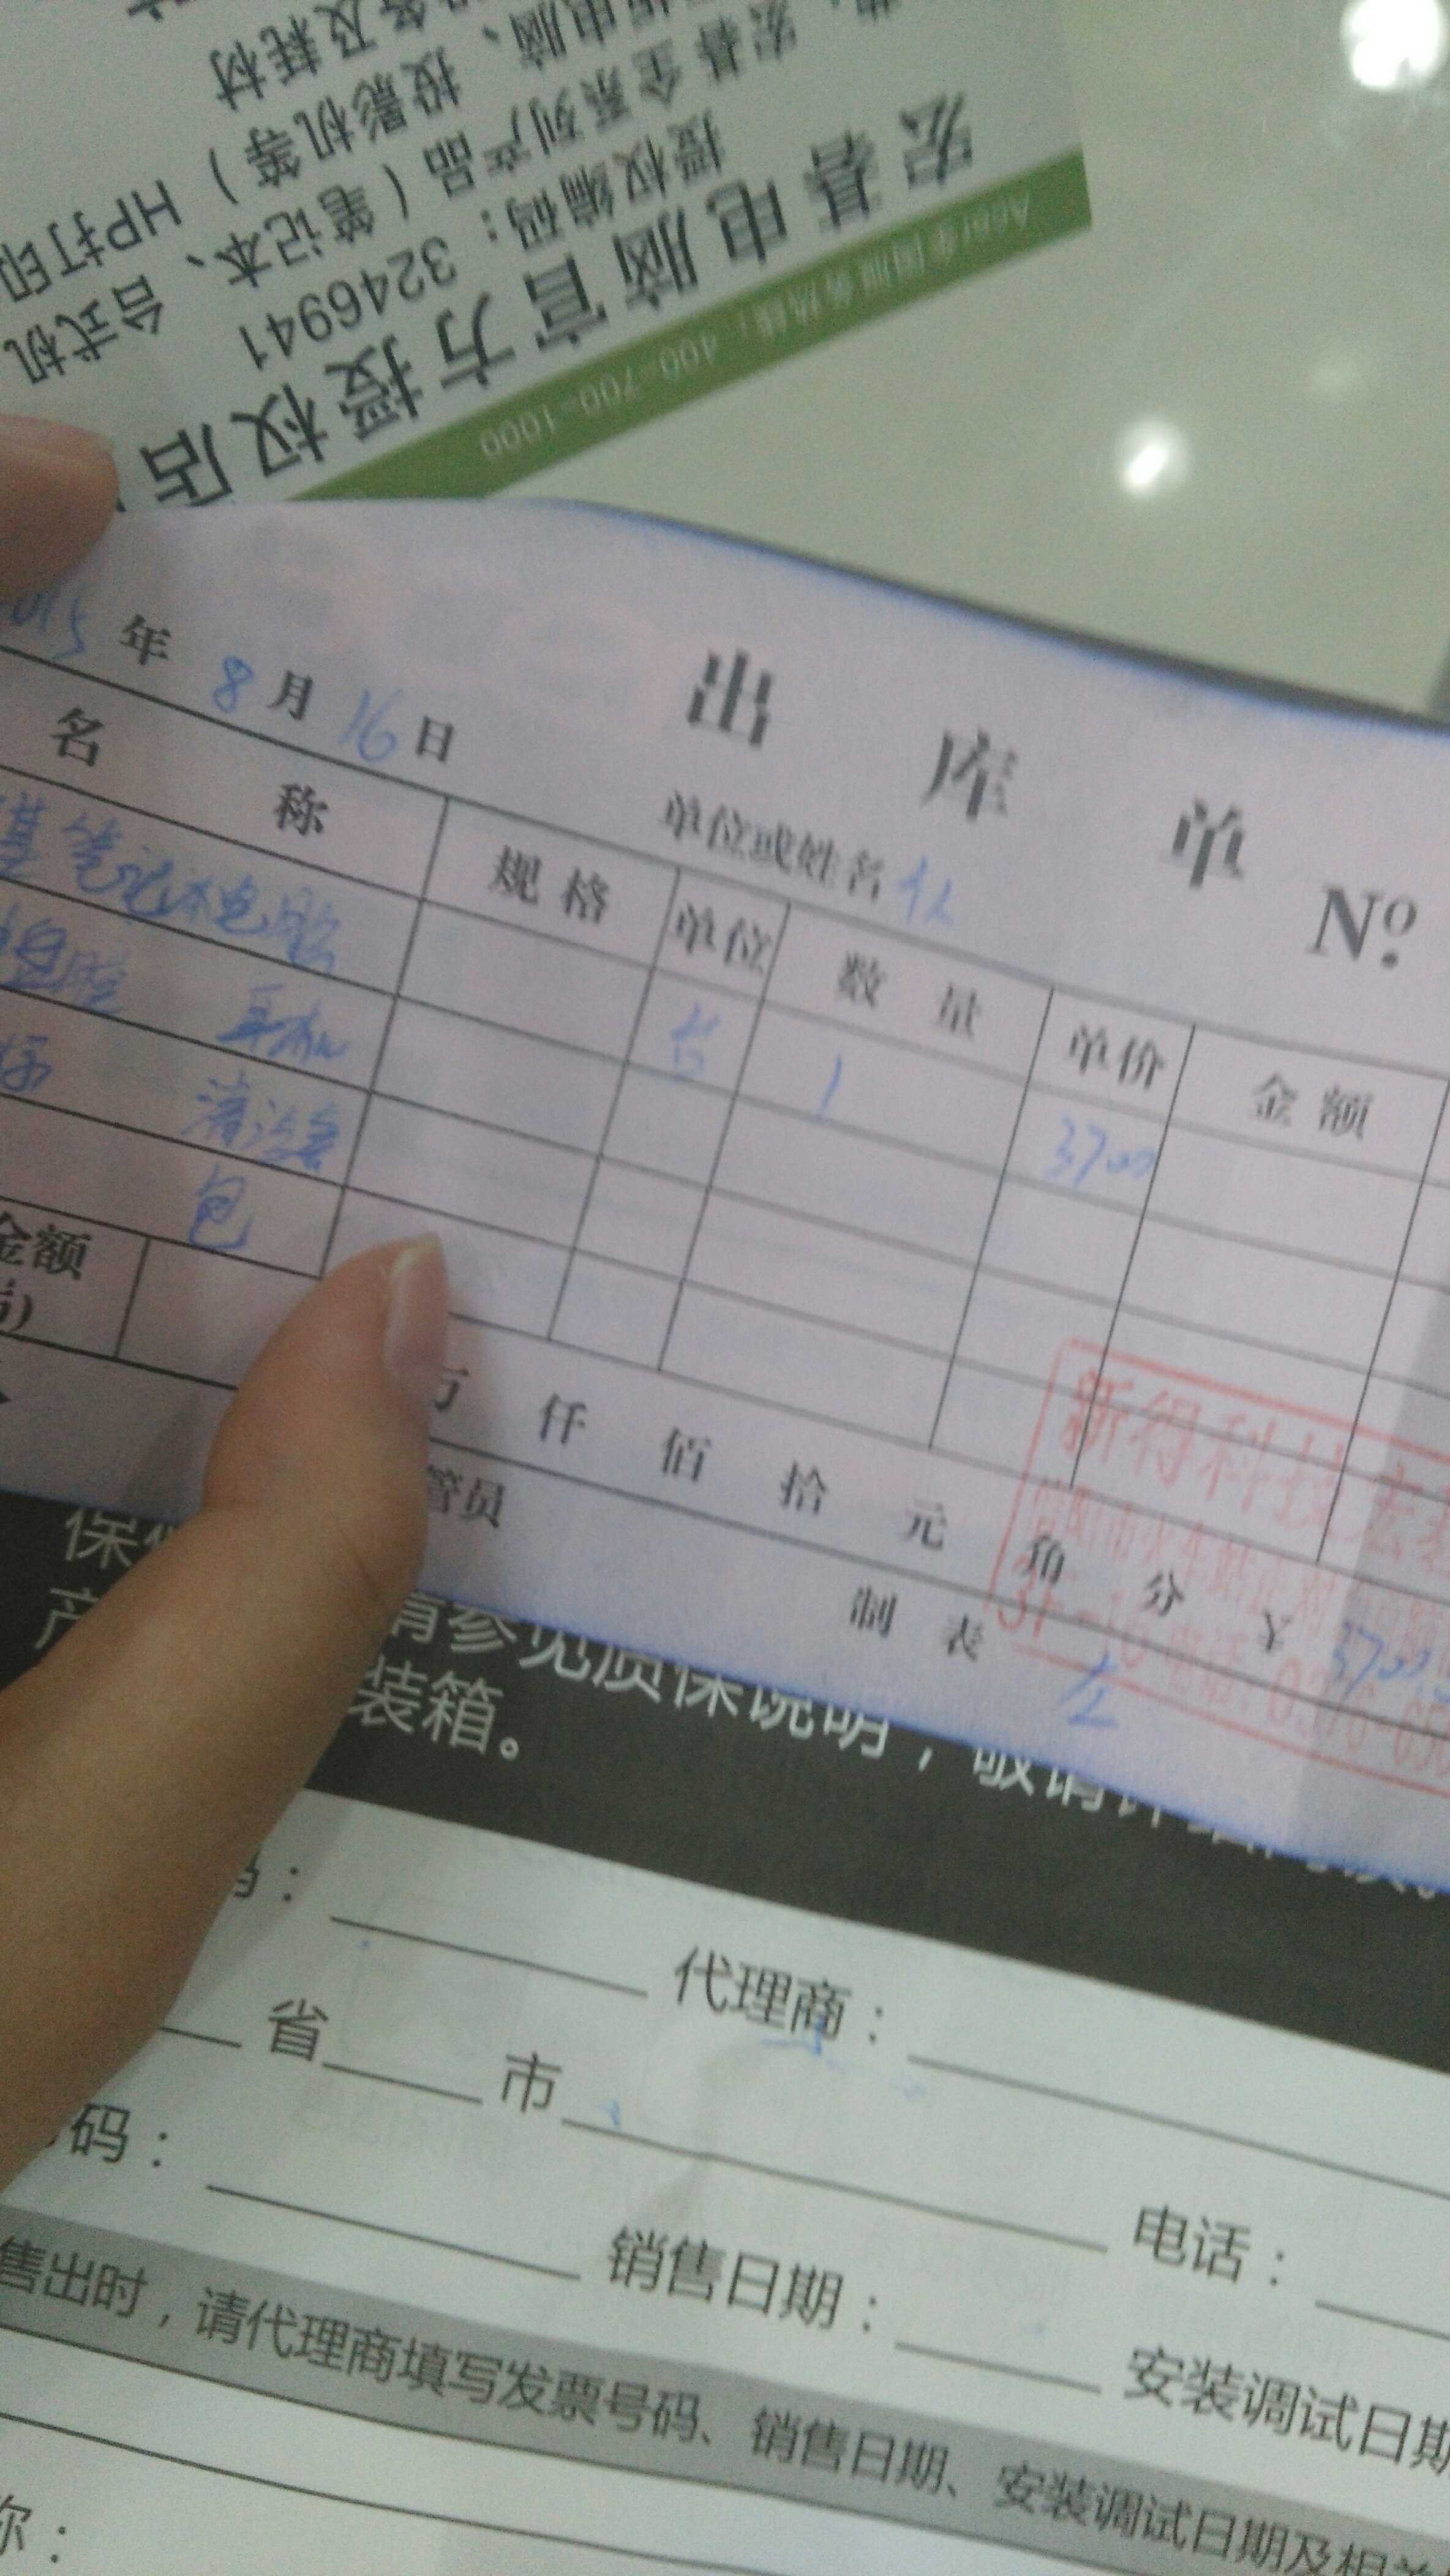 Acer全国服务热线：400-700-1000
宏碁电脑官方授权店
授权编码：3246941
宏碁全系列产品（笔记本、台式机
电脑、投影机等）HP打印
备及耗材
出库单
2015年8月16日
单位或姓名
№
名称 规格 单位 数量 单价 金额
基笔记本电脑 台 1 3700
耳机
清洁套
包
金额
万仟佰拾元角分¥3700
管员
制表
新得科技宏
电话:0376-
有参见质保说明，敬请
装箱。
码： 代理商：
省 市
码： 电话：
销售日期： 安装调试日期
售出时，请代理商填写发票号码、销售日期、安装调试日期及相关
称：